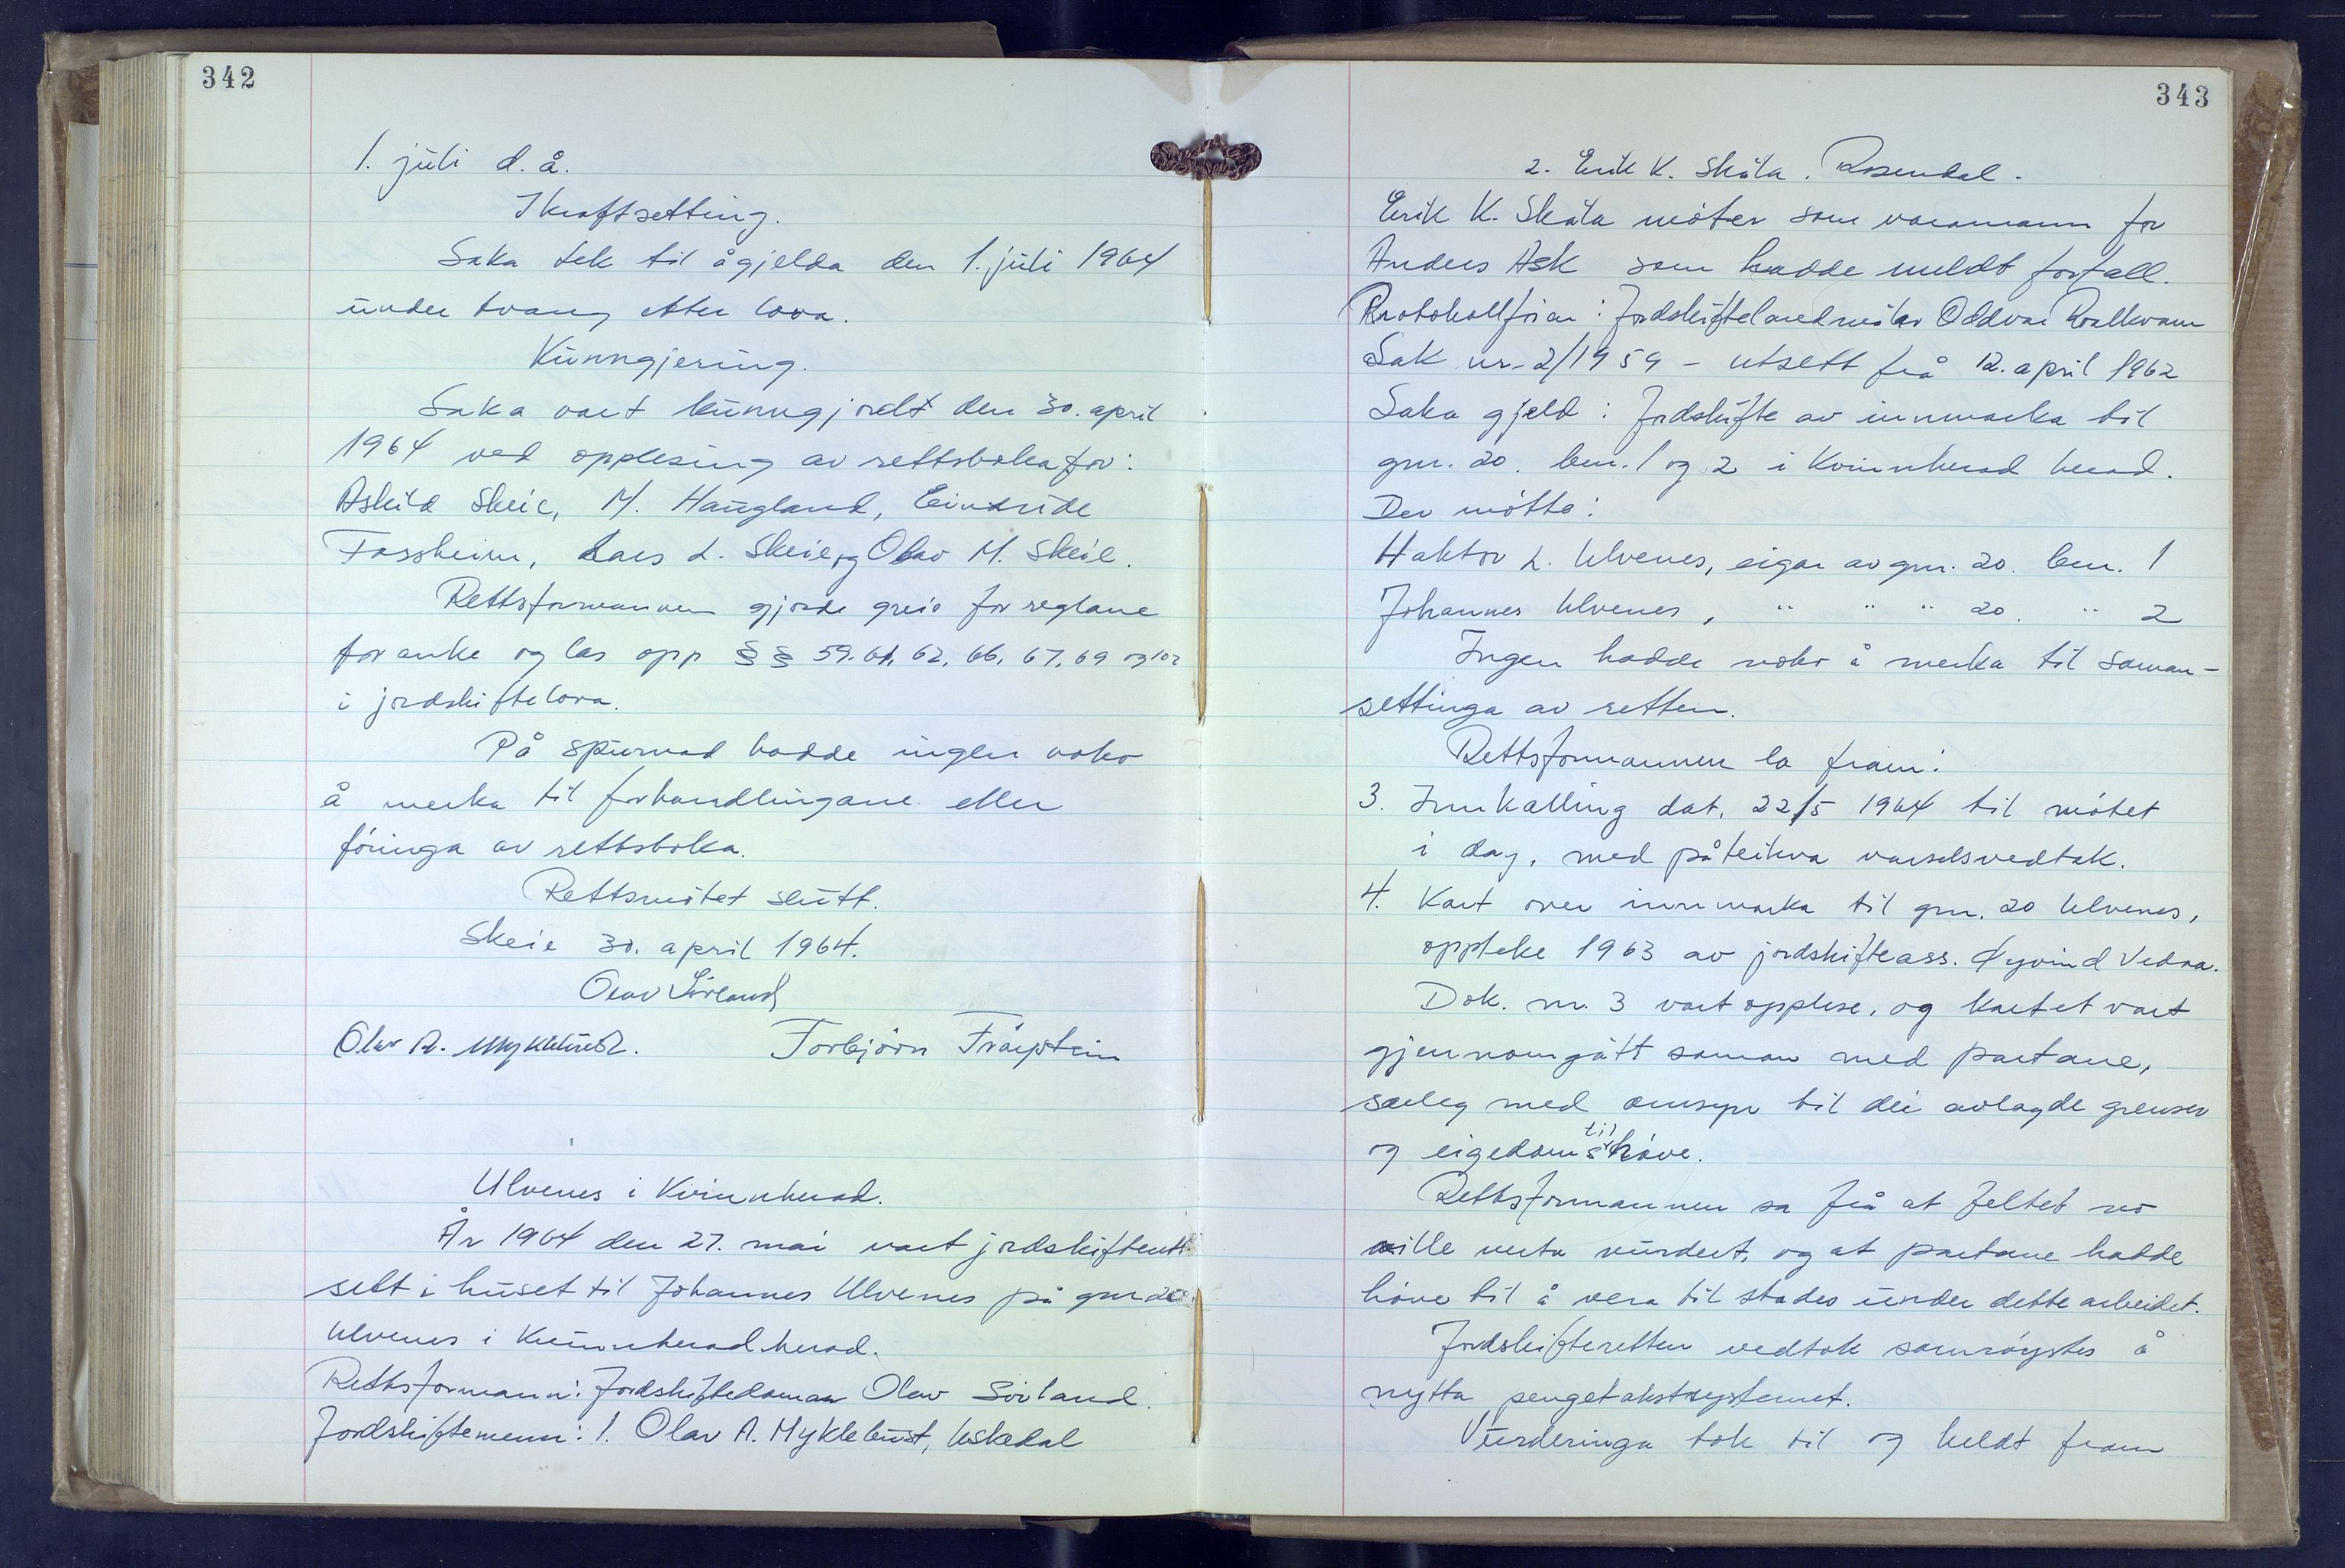 342
1. juli d. å.
Ikraftsetting.
Saka tek til å gjelda den 1. juli 1964
under tvang etter lova.
Kunngjering.
Saka vart kunngjordt den 30. april
1964 ved opplesing av rettsboka for:
Askild Skeie, M. Haugland, Eindride
Fossheim, Lars L. Skeie og Olav M. Skeie.
Rettsformannen gjorde greie for reglane
for anke og las opp §§ 59. 61, 62, 66, 67, 69 og 102
i jordskiftelova.
På spurnad hadde ingen noko
å merka til forhandlingane eller
föringa av rettsboka.
Rettsmötet slutt.
Skeie 30. april 1964.
Olav Sörland
Olav A. Myklebust. Torbjörn
Ulvenes i Kvinnherad.
År 1964 den 27. mai vart jordskifterett
sett i huset til Johannes Ulvenes på gnr 20.
Ulvenes i Kvinnherad herad.
Rettsformann: Jordskiftedomar Olav Sörland.
Jordskiftemenn: 1. Olav A. Myklebust, Uskedal
343
2. Erik K. Skåla. Rosendal.
Erik K. Skåla möter som varamann for
Anders Ask som hadde meldt forfall.
Protokollförar: Jordskiftelandmålar Oddvar
Sak nr. 2/1959 - utsett frå 12. april 1962
Saka gjeld: Jordskifte av innmarka til
gnr. 20. bnr. 1 og 2 i Kvinnherad herad.
Der mötte:
Haktor L. Ulvenes, eigar av gnr. 20. bnr. 1
Johannes Ulvenes, " " " 20. " 2
Ingen hadde noko å merka til saman-
settinga av retten.
Rettsformannen la fram:
3. Innkalling dat. 22/5 1964 til mötet
i dag, med påteikna varselsvedtak.
4. Kart over innmarka til gnr. 20 Ulvenes,
oppteke 1963 av jordskifteass. Øyvind Vedaa.
Dok. nr. 3 vart opplese, og kartet vart
gjennomgått saman med partane,
særleg med omsyn til dei avlagde grenser
og eigedomstilhöve.
Rettsformannen sa frå at feltet no
ville verta vurdert, og at partane hadde
höve til å vera til stades under dette arbeidet.
Jordskifteretten vedtok samröystes å
nytta pengetakstsystemet.
Vurderinga tok til og heldt fram